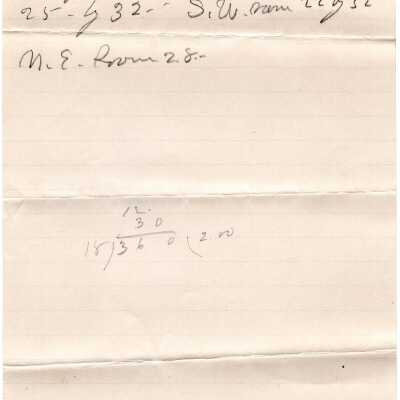 25- by 32-- S.W. room 22 by 32
N.E. Room 28.-
12.
30
18)360(2.00